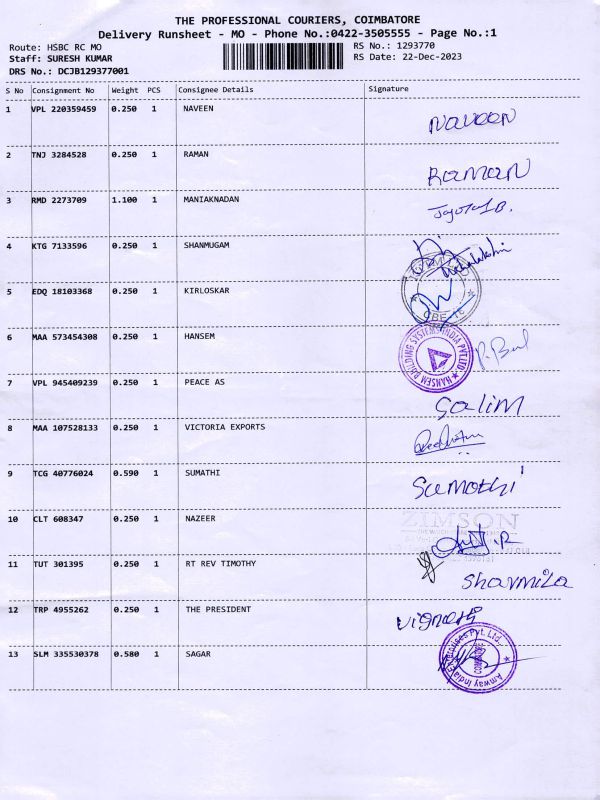 THE PROFESSIONAL COURIERS, COIMBATORE
Delivery Runsheet - MO - Phone No.:0422-3505555 - Page No.:1
Route: HSBC RC MO
RS No.: 1293770
Staff: SURESH KUMAR
RS Date: 22-Dec-2023
DRS No.: DCJB129377001
S No Consignment No Weight PCS Consignee Details Signature
1 VPL 220359459 0.250 1 NAVEEN Naveen
2 TNJ 3284528 0.250 1 RAMAN Raman
3 RMD 2273709 1.100 1 MANIAKNADAN
4 KTG 7133596 0.250 1 SHANMUGAM
5 EDQ 18103368 0.250 1 KIRLOSKAR
6 MAA 573454308 0.250 1 HANSEM
HANSEM BUILDING SYSTEMS INDIA PVT LTD
7 VPL 945409239 0.250 1 PEACE AS Salim
8 MAA 107528133 0.250 1 VICTORIA EXPORTS
9 TCG 40776024 0.590 1 SUMATHI Sumathi
10 CLT 608347 0.250 1 NAZEER
ZIMSON
11 TUT 301395 0.250 1 RT REV TIMOTHY Sharmila
12 TRP 4955262 0.250 1 THE PRESIDENT Vignesh
13 SLM 335530378 0.580 1 SAGAR
Amway India Enterprises Pvt. Ltd.,